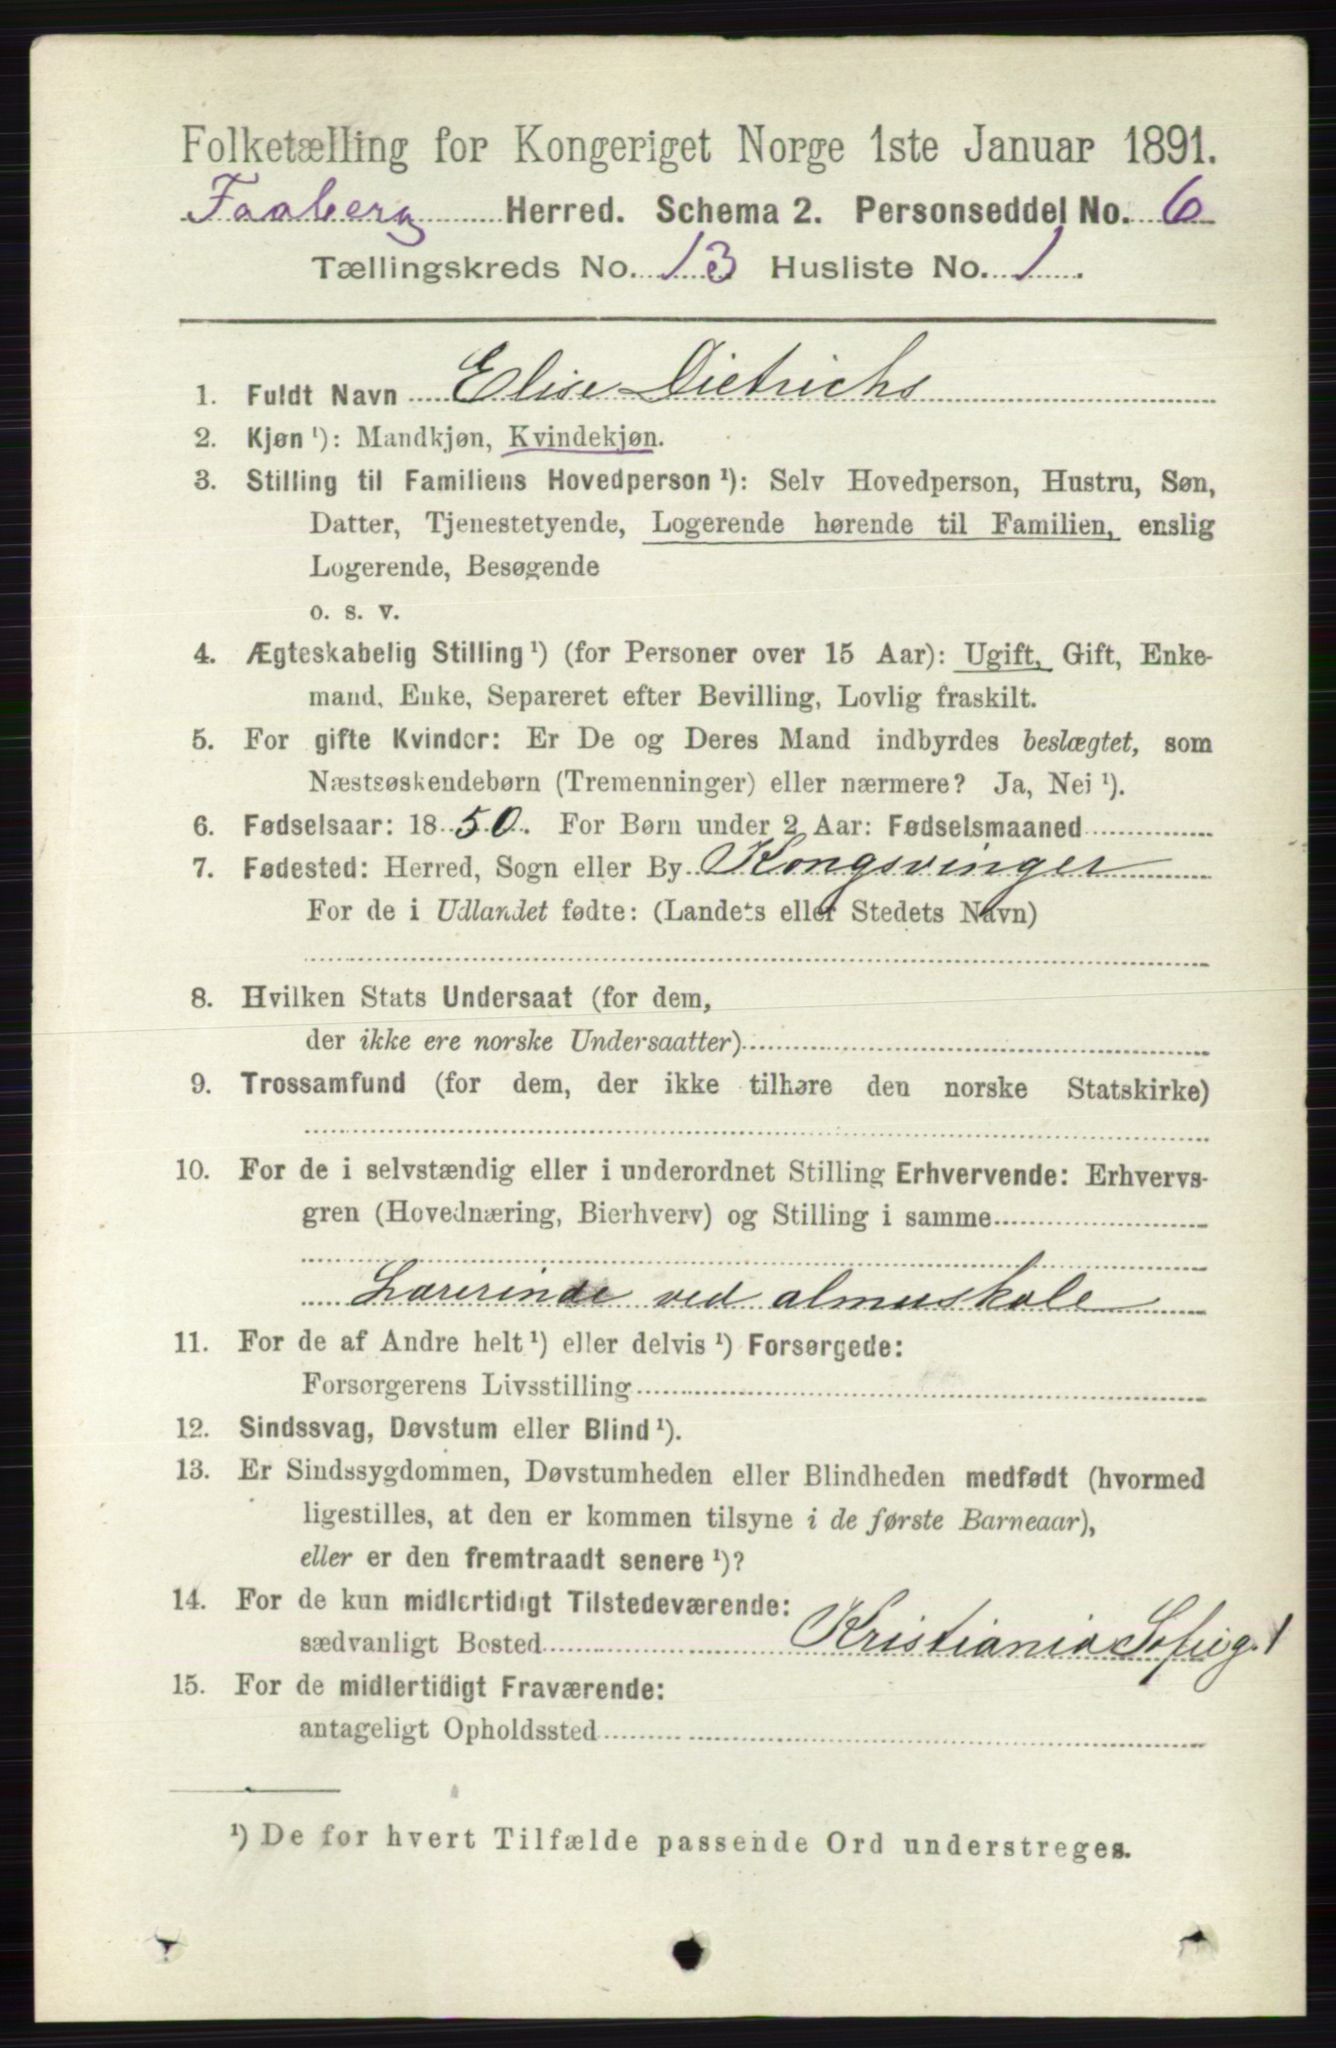 Folketælling for Kongeriget Norge 1ste Januar 1891.
Faaberg Herred. Schema 2. Personseddel No. 6
Tællingskreds No. 13 Husliste No. 1.
1. Fuldt Navn Elise Dietrichs
2. Kjøn ¹): Mandkjøn, Kvindekjøn.
3. Stilling til Familiens Hovedperson ¹): Selv Hovedperson, Hustru, Søn,
Datter, Tjenestetyende, Logerende hørende til Familien, enslig
Logerende, Besøgende
o. s. v.
4. Ægteskabelig Stilling ¹) (for Personer over 15 Aar): Ugift, Gift, Enke-
mand, Enke, Separeret efter Bevilling, Lovlig fraskilt.
5. For gifte Kvinder: Er De og Deres Mand indbyrdes beslægtet, som
Næstsøskendebørn (Tremenninger) eller nærmere? Ja, Nei ¹).
6. Fødselsaar: 1850. For Børn under 2 Aar: Fødselsmaaned
7. Fødested: Herred, Sogn eller By Kongsvinger
For de i Udlandet fødte: (Landets eller Stedets Navn)
8. Hvilken Stats Undersaat (for dem,
der ikke ere norske Undersaatter)
9. Trossamfund (for dem, der ikke tilhøre den norske Statskirke)
10. For de i selvstændig eller i underordnet Stilling Erhvervende: Erhvervs-
gren (Hovednæring, Bierhverv) og Stilling i samme
Lærerinde ved almueskole
11. For de af Andre helt ¹) eller delvis ¹) Forsørgede:
Forsørgerens Livsstilling
12. Sindssvag, Døvstum eller Blind ¹).
13. Er Sindssygdommen, Døvstumheden eller Blindheden medfødt (hvormed
ligestilles, at den er kommen tilsyne i de første Barneaar),
eller er den fremtraadt senere ¹)?
14. For de kun midlertidigt Tilstedeværende:
sædvanligt Bosted Kristiania Sofieg. 1
15. For de midlertidigt Fraværende:
antageligt Opholdssted
¹) De for hvert Tilfælde passende Ord understreges.